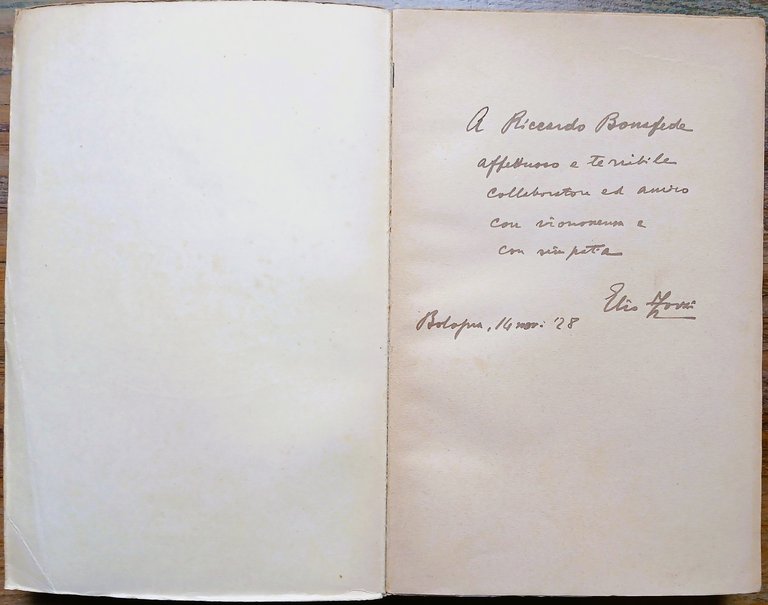 A Riccardo Bonafede
affettuoso e terribile
collaboratore ed amico
con riconoscenza e
con simpatia
Elio Zorzi
Bologna, 14 nov. '28